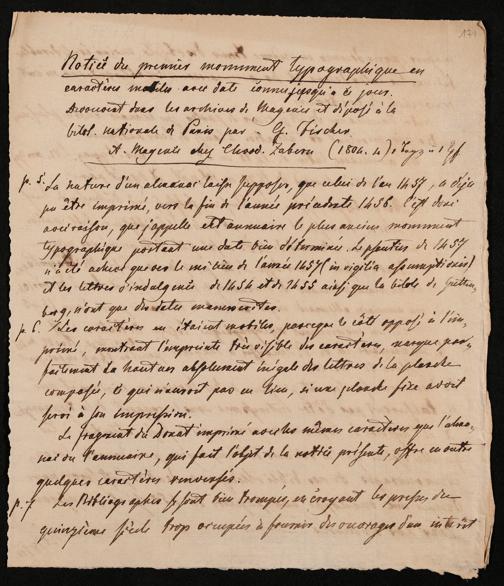 121
Notice du premier monument typographique en
caractères mobiles avec date connu jusqu'à ce jour.
Découvert dans les archives de Mayence et déposé à la
bibl. nationale de Paris par G. Fischer.
A Mayence chez Zabern (1804. 4)
p. 5. La nature d'un almanac laisse supposer, que celui de l'an 1457, a déja
pu être imprimé, vers la fin de l'année précédente 1456. C'est donc
avec raison, que j'appelle cet annuaire le plus ancien monument
typographique portant une date bien déterminée. Le psautier de 1457
n'a été achevé que vers le milieu de l'année 1457 (in vigilia assumptionis)
et les lettres d'indulgence de 1454 et de 1455 ainsi que la bible de Guttem-
berg, n'ont que des dates manuscrites.
p. 6. Les caractères en étaient mobiles, parceque le côté opposé à l'im-
primé, montrant l'empreinte très visible des caractères, marque par-
faitement la hauteur absolument inégale des lettres de la planche
composée, ce qui n'auroit pas eu lieu, si une planche fixe avoit
servi à son impression.
Le fragment du Donat imprimé avec les mêmes caractères que l'alma-
nac ou l'annuaire, qui fait l'objet de la notice présente, offre en outre
quelques caractères renversés.
p. 7. Les Bibliographes se sont bien trompés, en croyant les presses du
quinzième siècle trop occupées à fournir des ouvrages d'un intérêt